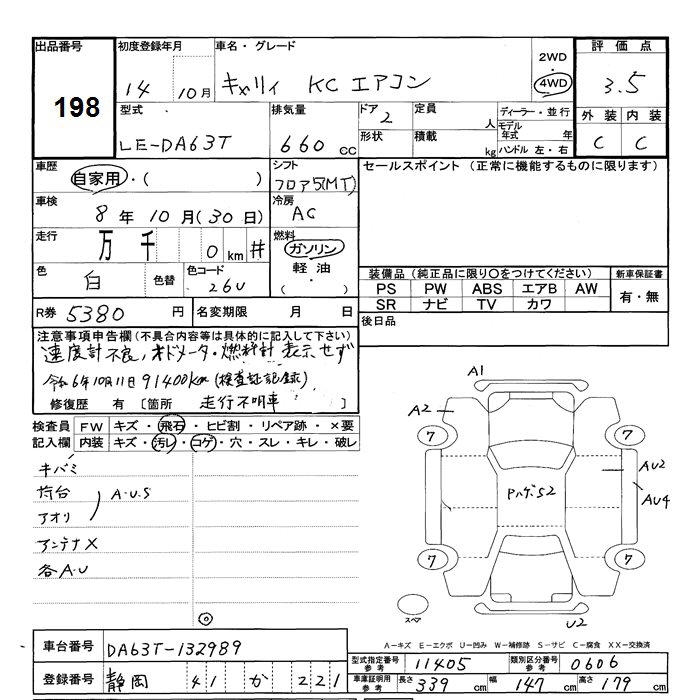 出品番号 初度登録年月 車名・グレード 評価点
198 14 10月 キャリィ KC エアコン 2WD・4WD 3.5
型式 排気量 ドア 2 定員 人 ディーラー・並行 外装 内装
モデル年式 年
LE-DA63T 660 cc 形状 積載 kg ハンドル 左・右 C C
車歴 自家用・( ) シフト フロア5(MT) セールスポイント (正常に機能するものに限ります)
車検 8年10月(30日) 冷房 AC
走行 万 千 0 km # 燃料 ガソリン
軽油
( ・ )
色 白 色替 色コード 26U
装備品 (純正品に限り○をつけてください) 新車保証書
PS PW ABS エアB AW 有・無
SR ナビ TV カワ
R券 5380 円 名変期限 月 日 後日品
注意事項申告欄(不具合内容等は具体的に記入して下さい)
速度計不良、オドメータ・燃料計 表示せず
令和6年10月11日 91400km (検査証記録)
修復歴 有 [箇所 走行不明車 ]
検査員 FW キズ・飛石・ヒビ割・リペア跡・×要
記入欄 内装 キズ・汚レ・コゲ・穴・スレ・キレ・破レ
キバミ
荷台 A.U.S
アオリ
アンテナX
各A.U
A1
A2
7 7
PハゲS2
AU2
AU4
7 7
スペア
U2
A-キズ E-エクボ U-凹み W-補修跡 S-サビ C-腐食 XX-交換済
車台番号 DA63T-132989
型式指定番号 参考 11405 類別区分番号 参考 0606
登録番号 静岡 41 か 221
車庫証明用 参考 長さ 339 cm 幅 147 cm 高さ 179 cm